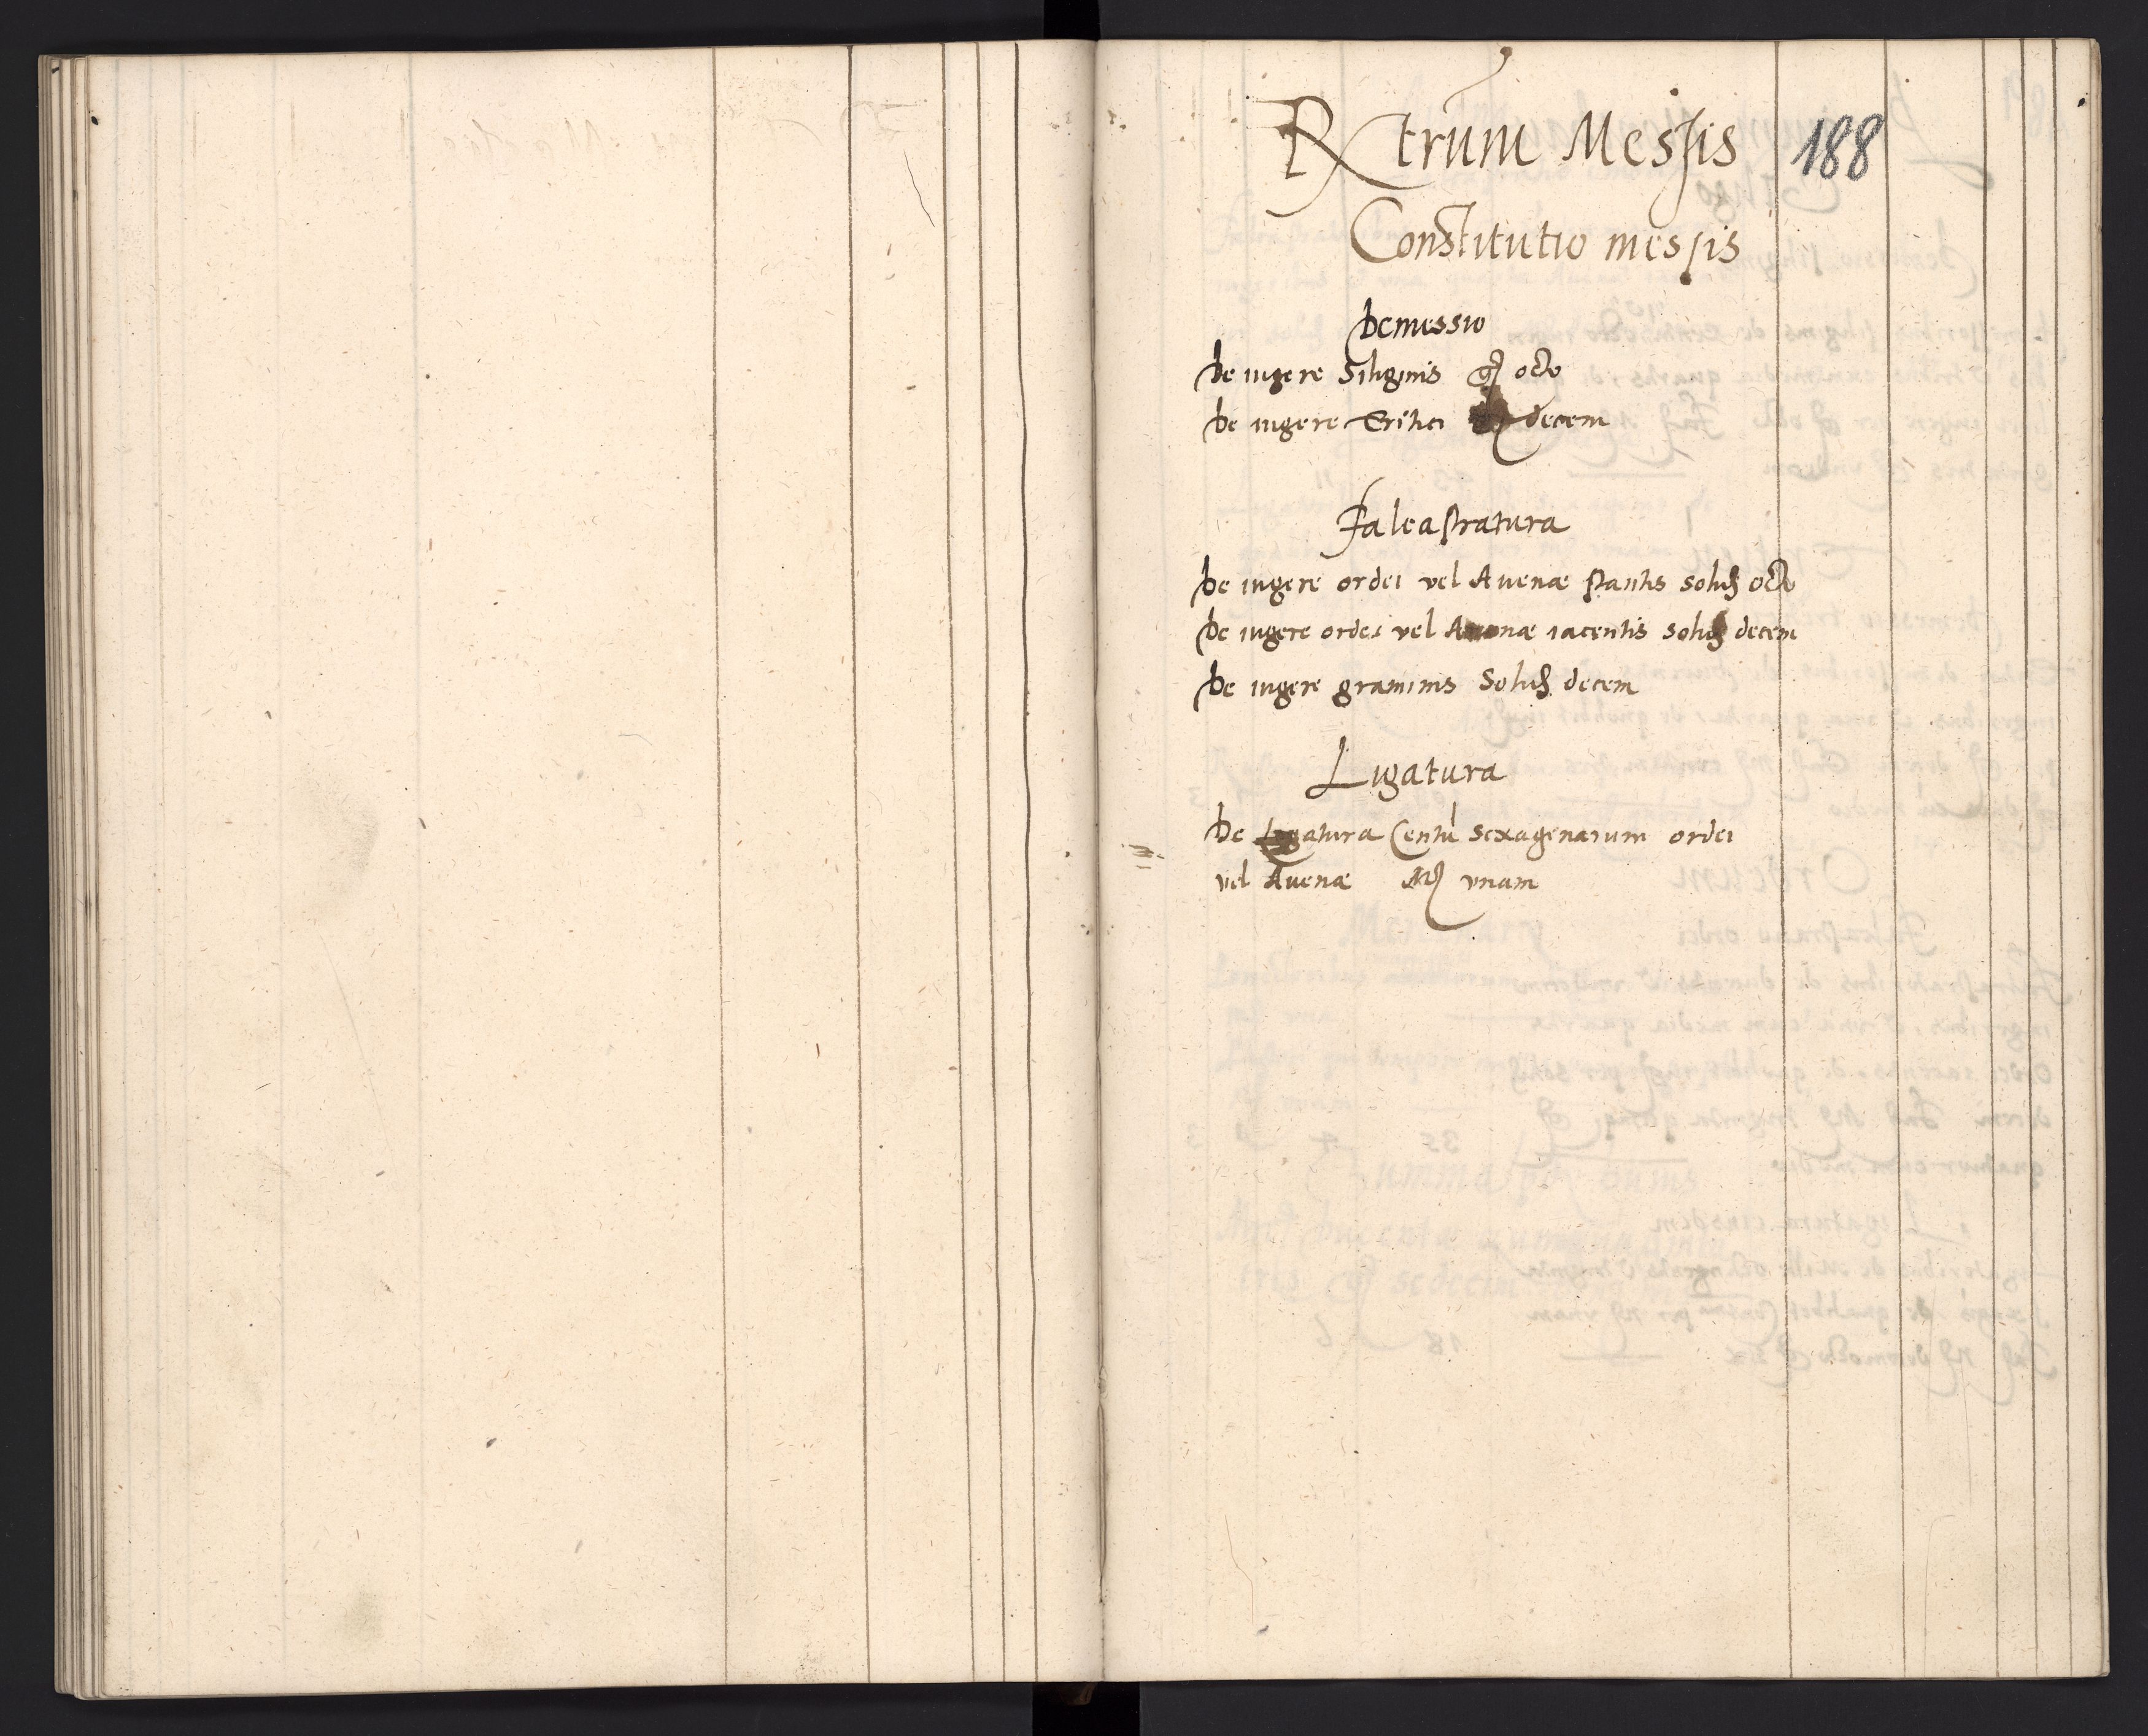 Rtrum Messis 188
Constitutio messis
Demessio
De iugere Siliginis gr octo
De iugere Tritici decem
Falcastratura
De iugere ordei vel Auenæ stantis solid octo
De iugere ordei vel Auenæ iacentis solid decem
De iugere graminis Solid decem
Ligatura
De Ligatura Centu sexagenarum ordei
vel Auenæ Mr vnam